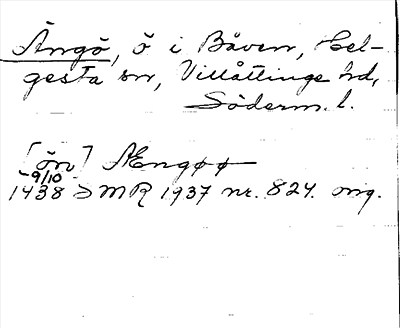 Ängö, ö i Båven, Hel-
gesta sn, Villåttinge hd,
Söderm. l.
[ön] Ængøø
9/10
1438 SMR 1937 nr. 824. orig.